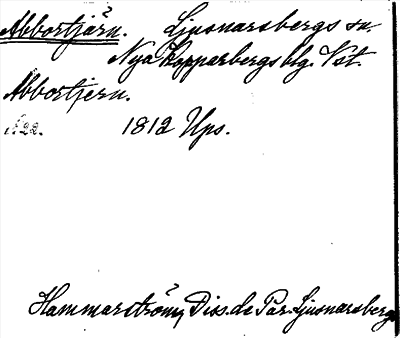 Abbortjärn. Ljusnarsbergs sn.
Nya Kopparbergs blg. Vst.
Abbortjern.
S. 22. 1812 Ups.
Hammarström, Diss. de Par. Ljusnarsberg